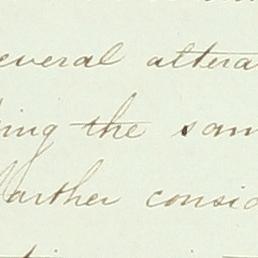 several altera
ing the sam
farther consid